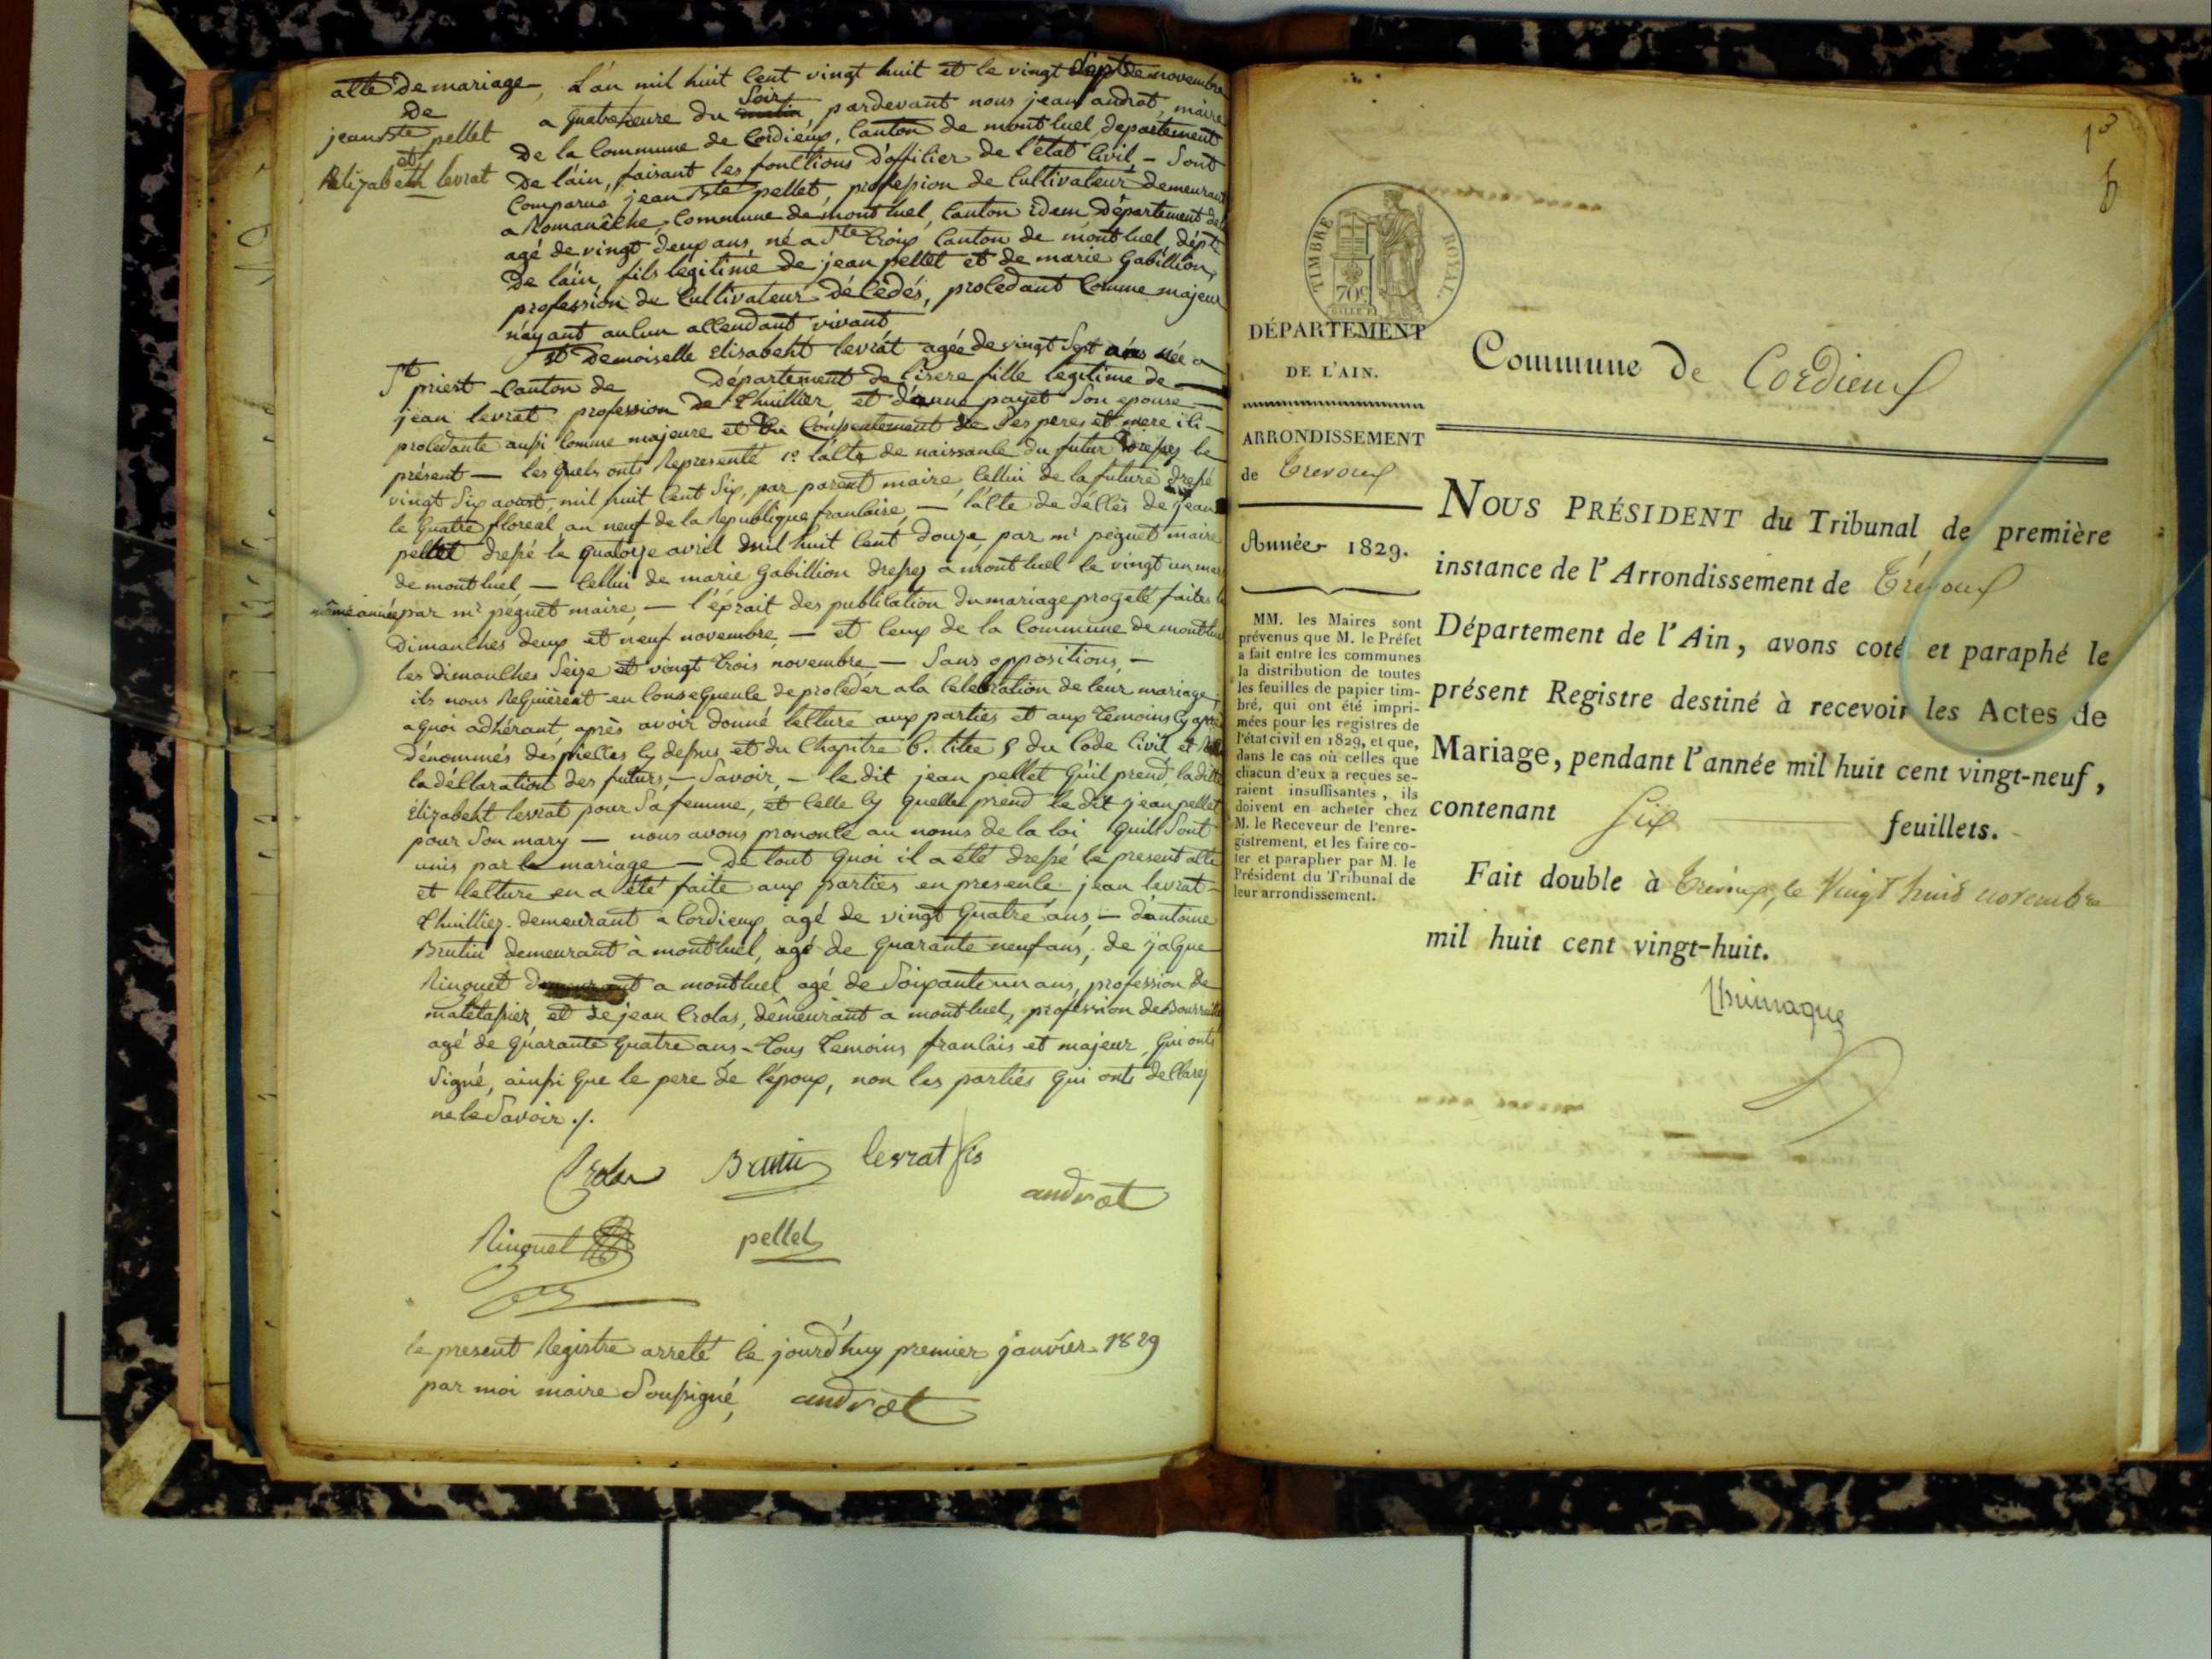 atte de mariage
de
jean Bte pellet
et
Relizabeth levrat
L'an mil huit Cent vingt huit et le vingt Sept de novembre
a quatre heure du Soir matin, pardevant nous jean androt, maire
De la Commune de Cordieux, Canton de montluel, departement
De l'ain, faisant les fonctions d'officier de l'état Civil, - Sont
Comparus jean Bte pellet, profession de Cultivateur demeurant
a Romanèche, Commune de montluel, Canton idem, Département de
agé de vingt deux ans, né a Ste Croix Canton de montluel, dépt
De l'ain, fils legitime de jean pellet et de marie Gabillion,
profession de Cultivateur décédés, procedant Comme majeur
n'ayant aucun ascendant vivant
Et Demoiselle Elisabeht levrat agée de vingt Sept ans née a
St priest Canton de Département de lisere fille legitime de
jean levrat profession de Thuillier et d'anne payet Son epouse
procedante aussi Comme majeure et Du Consentement de Ses peres et mere ici
présent — les quels onts Représenté 1º l'acte de naissance du futur dressez le
vingt Six aoust, mil huit Cent Six, par parent maire, Cellui de la future dressé
le Quatre floreal an neuf de la Republique francaise, — l'acte de décès de jean
pellet dressé le quatorze avril mil huit Cent douze, par mr peguet maire
de montluel — Cellui de marie Gabillion dressez a montluel le vingt un
même année par mr péguet maire, — l'éxrait des publication du mariage projeté faites
Dimanches deux et neuf novembre, — et Ceux de la Commune de montluel
les dimanches Seize et vingt trois novembre — Sans oppositions, —
ils nous Requièrent en Consequence de procéder a la Celebration de leur mariage,
a quoi adhérant, après avoir donné lecture aux parties et aux temoins Cy après
Dénommés des pielles Cy dessus et du Chapitre 6. titre 5 du Code Civil et
la déclaration des futurs, — Savoir, — le dit jean pellet qu'il prend la ditte
Elizabeht levrat pour Sa femme, et Celle Cy quelle prend le dit jean pellet
pour Son mary — nous avons prononcé au noms de la loi quill Sont
unis par le mariage — De tout Quoi il a été dressé le present acte
et lecture en a été faite aux parties en presence jean levrat
Thuillier demeurant a Cordieux, agé de vingt Quatre ans — d'antoine
Brutin demeurant à montluel, agé de quarante neuf ans, de jaque
Ringuet demeurant a montluel agé de Soixante un ans, profession de
matelassier, et de jean Crolas, démeurant a montluel, profession de
agé de quarante Quatre ans - Tous temoins francais et majeur, Qui onts
Signé, ainssi que le pere de l'époux, non les parties Qui onts declarez
ne le Savoir ./.
Crolas Brutin levrat fis
androt
Ringuet pellet
le present Registre arrêté le jourd'huy premier janvier 1829
par moi maire Soussigné, androt
TIMBRE ROYAL.
70c
DÉPARTEMENT
DE L'AIN.
ARRONDISSEMENT
de Trevoux
Année 1829.
MM. les Maires sont
prévenus que M. le Préfet
a fait entre les communes
la distribution de toutes
les feuilles de papier tim-
bré, qui ont été impri-
mées pour les registres de
l'état civil en 1829, et que,
dans le cas où celles que
chacun d'eux a reçues se-
raient insuffisantes, ils
doivent en acheter chez
M. le Receveur de l'enre-
gistrement, et les faire co-
ter et parapher par M. le
Président du Tribunal de
leur arrondissement.
Commune de Cordieux
NOUS PRÉSIDENT du Tribunal de première
instance de l'Arrondissement de Trévoux
Département de l'Ain, avons coté et paraphé le
présent Registre destiné à recevoir les Actes de
Mariage, pendant l'année mil huit cent vingt-neuf,
contenant Six feuillets.
Fait double à Trevoux, le Vingt huit novembre
mil huit cent vingt-huit.